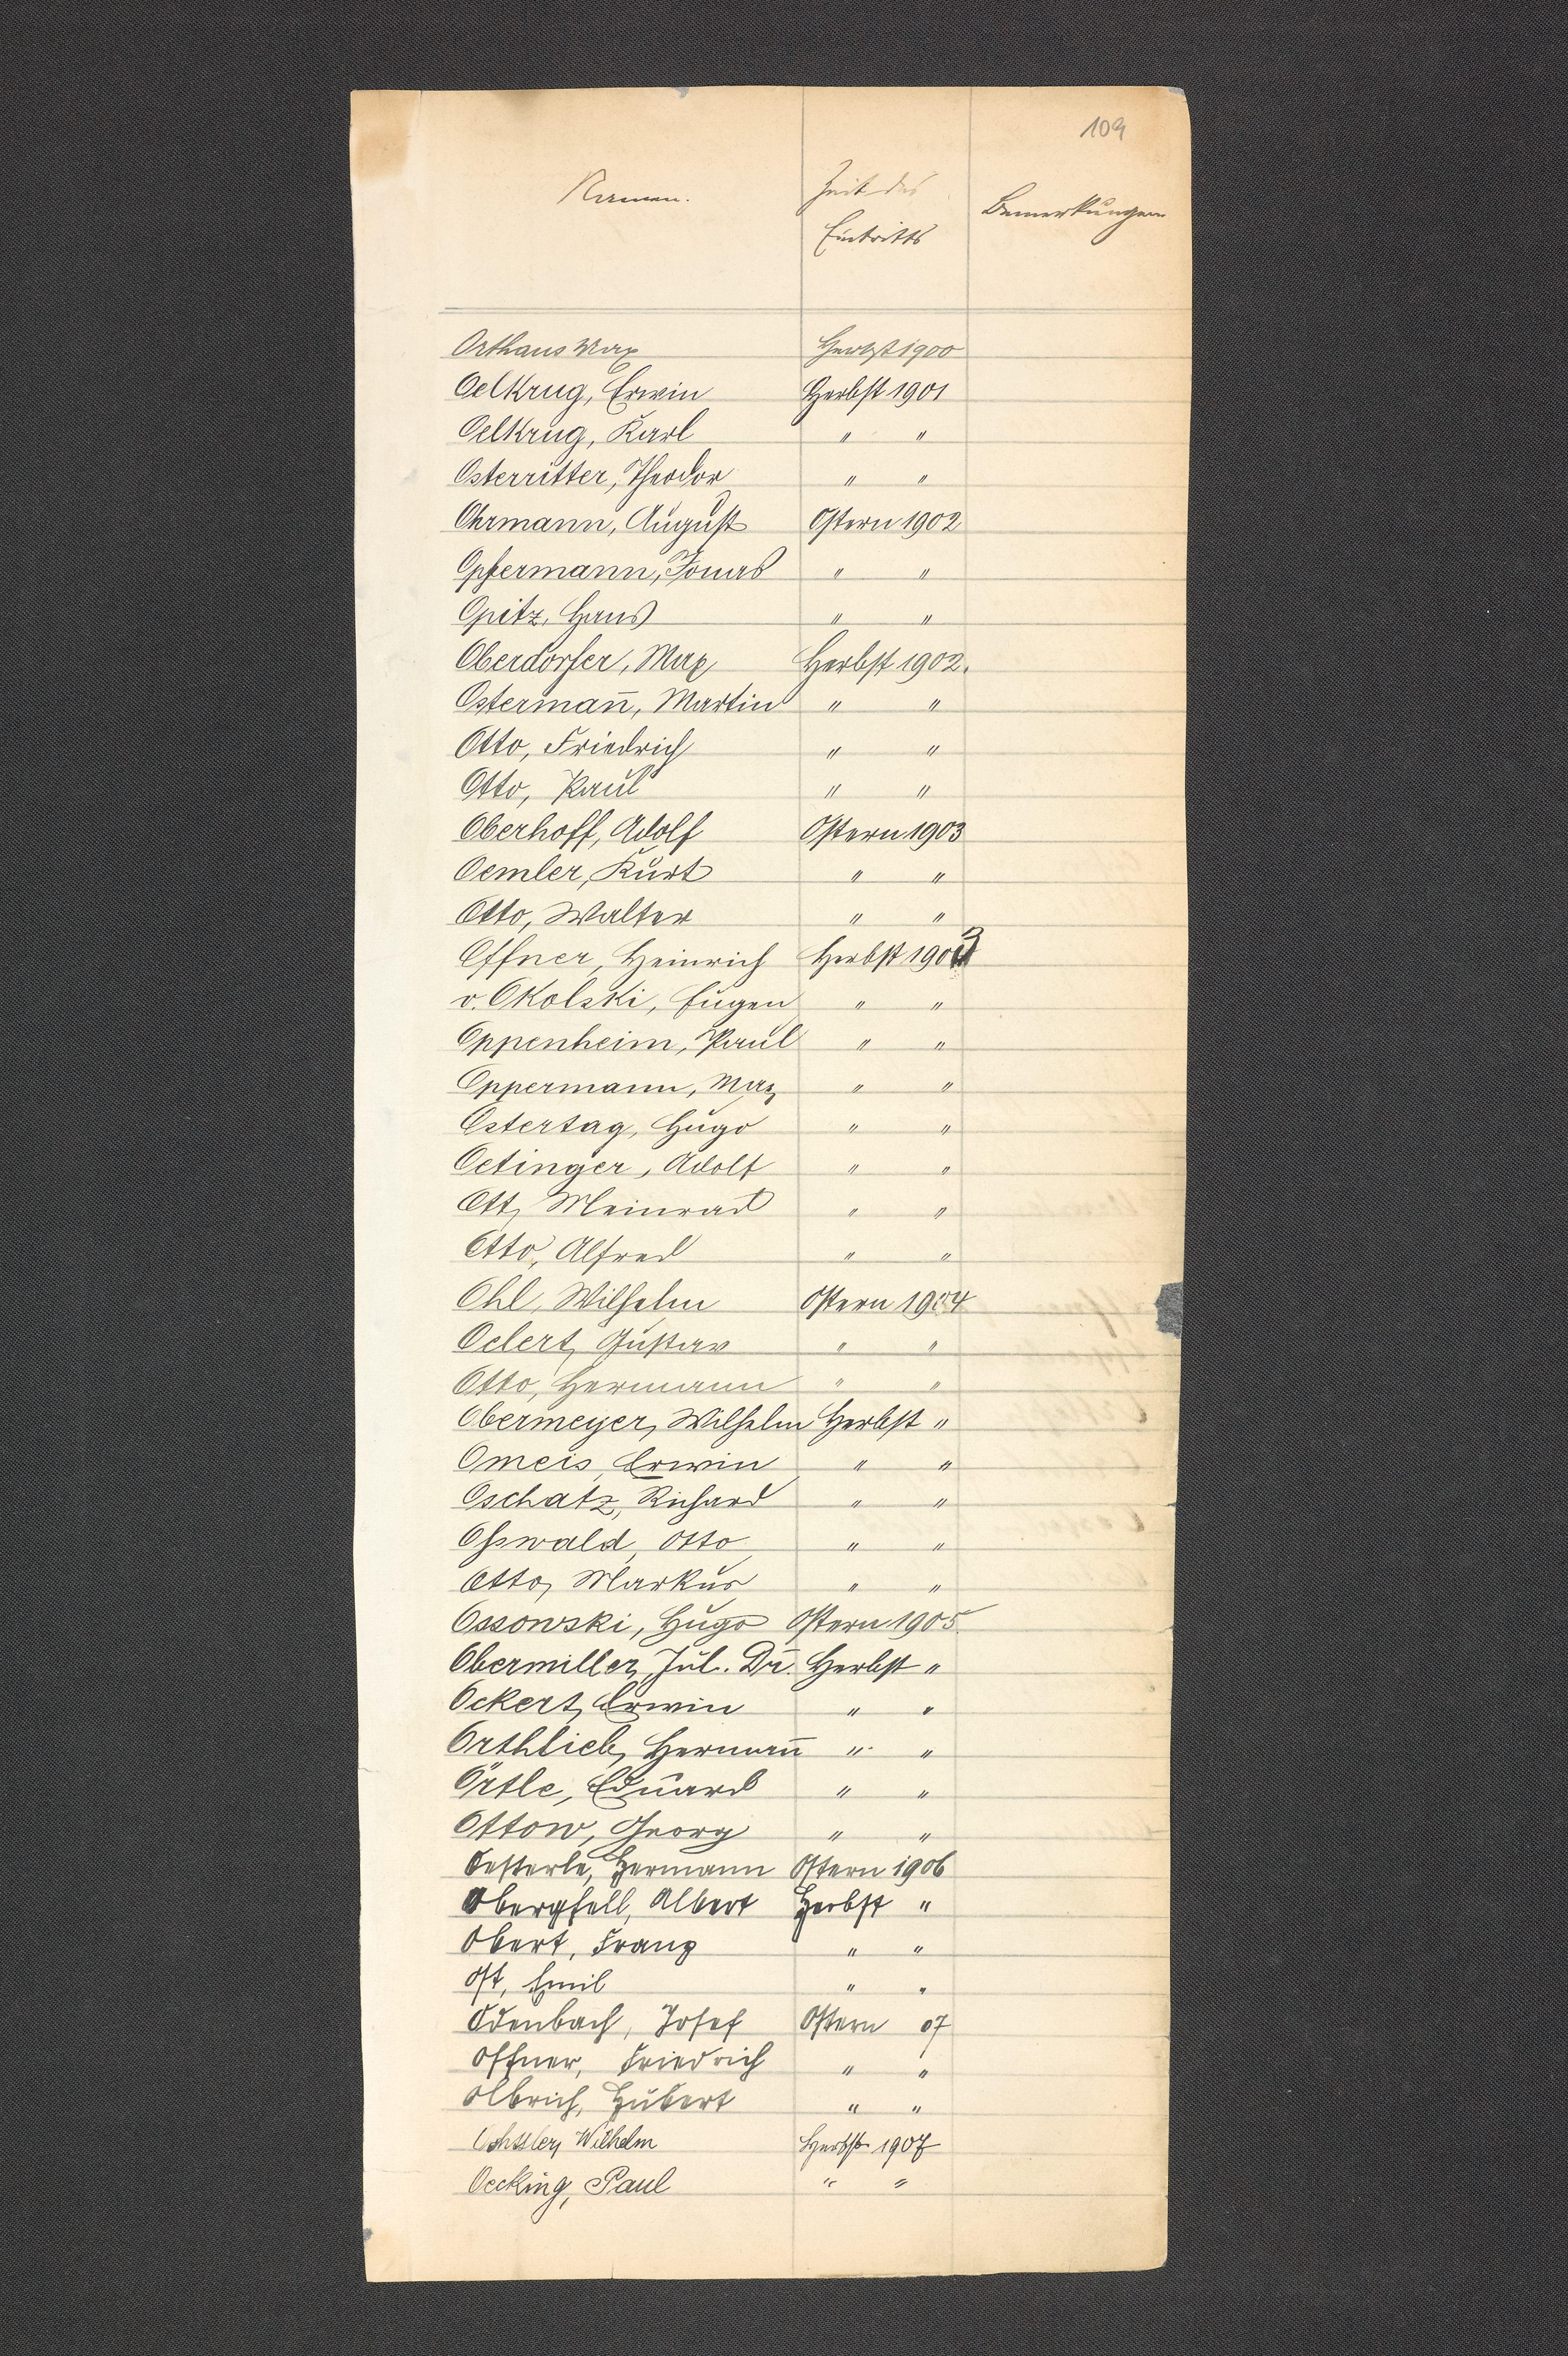 109
Namen.
Zeit des
Eintritts
Bemerkungen
Orthaus Max Herbst 1900
Oelkrug, Erwin Herbst 1901
Oelkrug, Karl " "
Osterritter, Theodor " "
Ohrmann, August Ostern 1902
Opfermann, Jonas " "
Opitz, Hans " "
Oberdorfer, Max Herbst 1902.
Osterman̄, Martin " "
Otto, Friedrich " "
Otto, Paul " "
Oberhoff, Adolf Ostern 1903
Oemler, Kurt " "
Otto, Walter " "
Offner, Heinrich Herbst 1903
v. Okolski, Eugen " "
Oppenheim, Paul " "
Oppermann, Max " "
Ostertag, Hugo " "
Oetinger, Adolf " "
Ott, Meinrad " "
Otto, Alfred " "
Ohl, Wilhelm Ostern 1904
Oelert, Gustav " "
Otto, Hermann " "
Obermeyer, Wilhelm Herbst "
Omeis, Erwin " "
Oschatz, Richard " "
Oßwald, Otto " "
Otto, Markus " "
Ossowski, Hugo Ostern 1905.
Obermiller, Jul. Dr. Herbst "
Ockert, Erwin " "
Orthlieb, Herman̄ " "
Örtle, Eduard " "
Ottow, Georg " "
Oesterle, Hermann Ostern 1906
Obergfell, Albert Herbst "
Obert, Franz " "
Ost, Emil " "
Odenbach, Josef Ostern 07
Offner, Friedrich " "
Olbrich, Hubert " "
Wilhelm Herbst 1907
Oecking, Paul " "